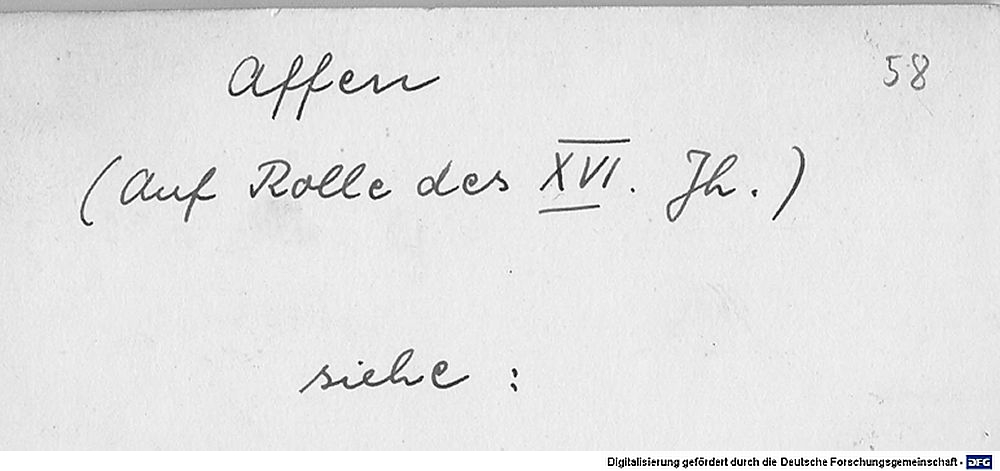 Affen
58
(auf Rolle des XVI. Jh.)
siehe :
Digitalisierung gefördert durch die Deutsche Forschungsgemeinschaft - DFG